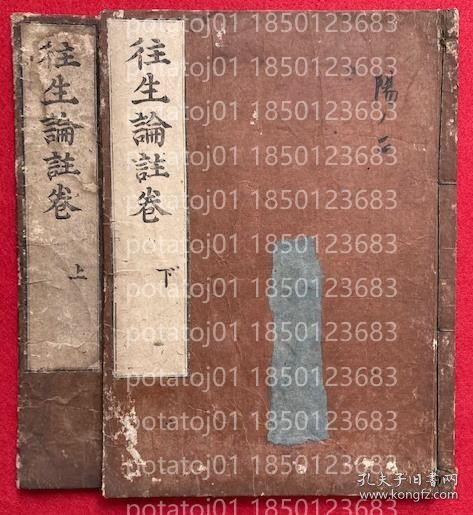 往生論註卷
上
往生論註卷
下
陽ノ
potatoj01 1850123683
potatoj01 1850123683
potatoj01 1850123683
potatoj01 1850123683
potatoj01 1850123683
potatoj01 1850123683
potatoj01 1850123683
potatoj01 1850123683
potatoj01 1850123683
potatoj01 1850123683
potatoj01 1850123683
孔夫子旧书网
www.kongfz.com